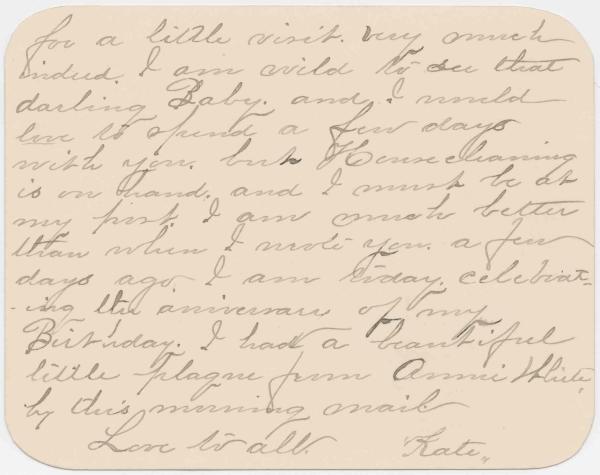 for a little visit. very much
indeed. I am wild to see that
darling Baby. and I would
love to spend a few days
with you. but Housecleaning
is on hand. and I must be at
my post. I am much better
than when I wrote you. a few
days ago I am today. celebrat-
-ing the aniversary of my
Birthday. I had a beautiful
little plaque from Annie White,
by this morning mail
Love to all. "Kate"